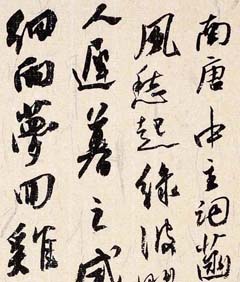 南唐中主詞菡
風愁起綠波間
人遲暮之感
細雨夢回雞